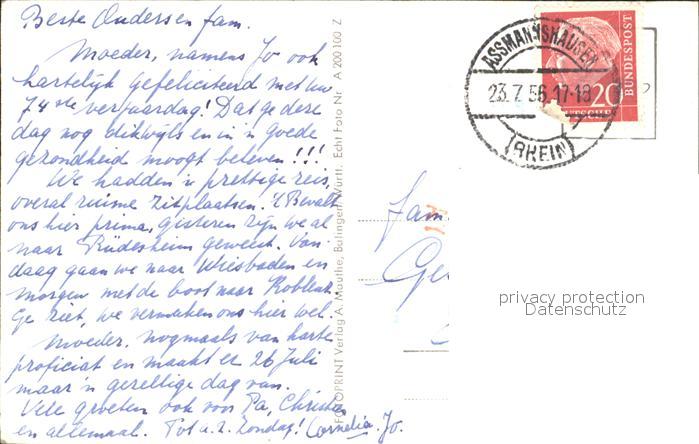 Beste Ouders en fam.
Moeder, namens Jo ook
hartelijk gefeliciteerd met uw
74ste verjaardag! Dat ge deze
dag nog dikwijls en in 'n goede
gezondheid moogt beleven!!!
We hadden 'n prettige reis,
overal ruime zitplaatsen. 't Bevalt
ons hier prima, gisteren zijn we al
naar Rüdesheim geweest. Van-
daag gaan we naar Wiesbaden en
morgen met de boot naar Koblenz.
Ge ziet, we vermaken ons hier wel.
Moeder, nogmaals van harte
proficiat en maakt er 26 Juli
maar 'n gezellige dag van.
Vele groeten ook voor Pa, Christien
en allemaal. Tot a.s. Zondag! Cornelia. Jo.
FOTOPRINT Verlag A. Mauthe, Balingen/Württ. Echt Foto Nr. A 200100 Z
ASSMANNSHAUSEN
23.7.56.17-18
(RHEIN)
20
DEUTSCHE
BUNDESPOST
Fam
Ge
privacy protection
Datenschutz